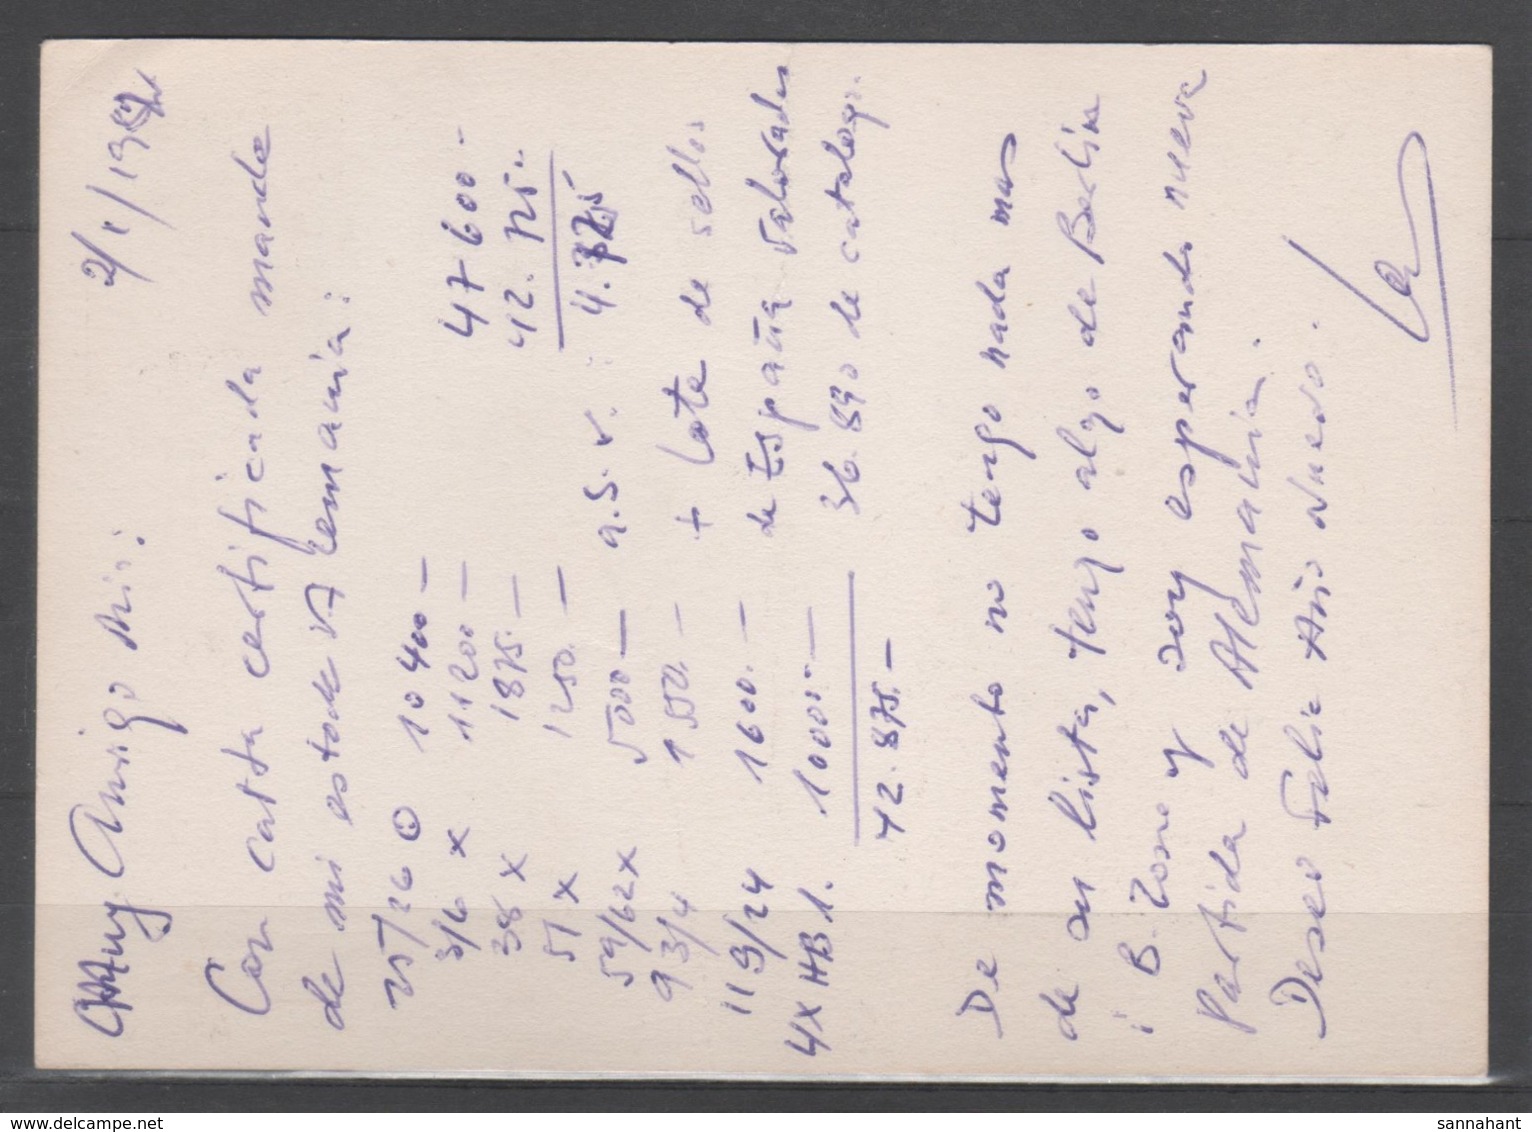 2/1/19
Muy Amigo Mio:
Con carta certificada mande
de mi estock Alemania:
25/26 ⊙ 10400—
3/6 x 11200— 47600-
38 x 1875.— 42.725.-
51 x 1250.— 4.875
59/62 x 5000— a.S.v.:
93/4 1550.— + Lote de sellos
119/24 1600.— de España valorados
4x HB1. 10000.— 36.890 de catalogo.
42.875.—
De momento no tengo nada mas
de en lista, tengo algo de Berlin
i B. Zone y soy esperando nueva
Partida de Alemania.
Deseo Feliz Año Nuevo.
sannahant
delcampe.net